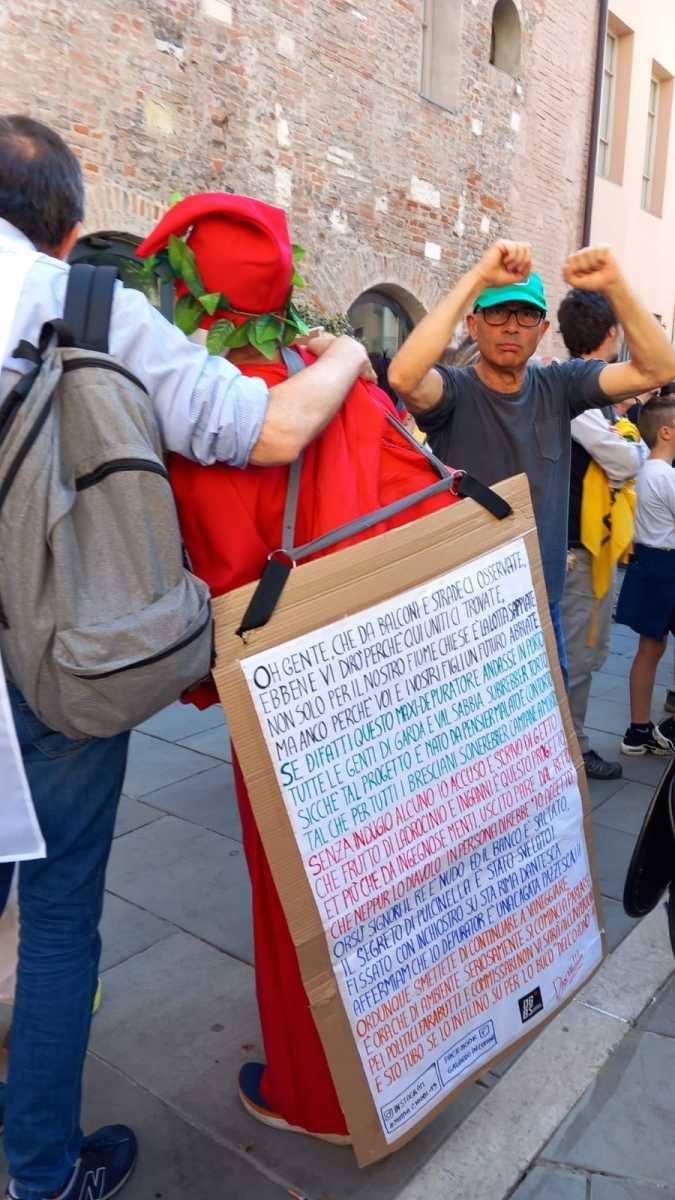 OH GENTE, CHE DA BALCONI E STRADE CI OSSERVATE,
EBBENE VI DIRÒ PERCHÈ QUI UNITI CI TROVATE,
NON SOLO PER IL NOSTRO FIUME CHIESE E LA LOTTA SAPPIATE
MA ANCO PERCHÈ VOI E I NOSTRI FIGLI UN FUTURO ABBIATE
SE DIFATTI QUESTO MAXI-DEPURATORE ANDASSE IN PORTO
TUTTE LE GENTI DI GARDA E VAL SABBIA SUBIREBBER TORTO
SICCHE TAL PROGETTO E NATO DA PENSIER MALATO E CONTORTO
TAL CHE PER TUTTI I BRESCIANI SONEREBBER CAMPANE A MORTO
SENZA INDUGIO ALCUNO IO ACCUSO E SCRIVO DI GETTO
CHE FRUTTO DI LADROCINIO E INGANNI È QUESTO PROGETTO
ET PIÙ CHE DA INGEGNOSE MENTI USCITO PARE DAL RETTO
CHE NEPPUR LO DIAVOLO IN PERSONA DIREBBE "IO ACCETTO"
ORSÙ SIGNORI IL RE È NUDO ED IL BANCO È SALTATO,
IL SEGRETO DI PULCINELLA E' STATO SVELATO!
FISSATO CON INCHIOSTRO SU STA RIMA DANTESCA
AFFERMIAM CHE LO DEPURATOR È UNA CAGATA PAZZESCA!!
ORDUNQUE SMETTETE DI CONTINUARE A VANEGGIARE
È ORA CHE DI AMBIENTE SERIAMENTE SI COMINCI A PARLARE
PEI POLITICI FARABUTTI E COMMISSARI NON VI SARÀ
E STO TUBO SE LO INFILINO SU PER LO BUCO DELL'
INSTAGRAM
FACEBOOK
N